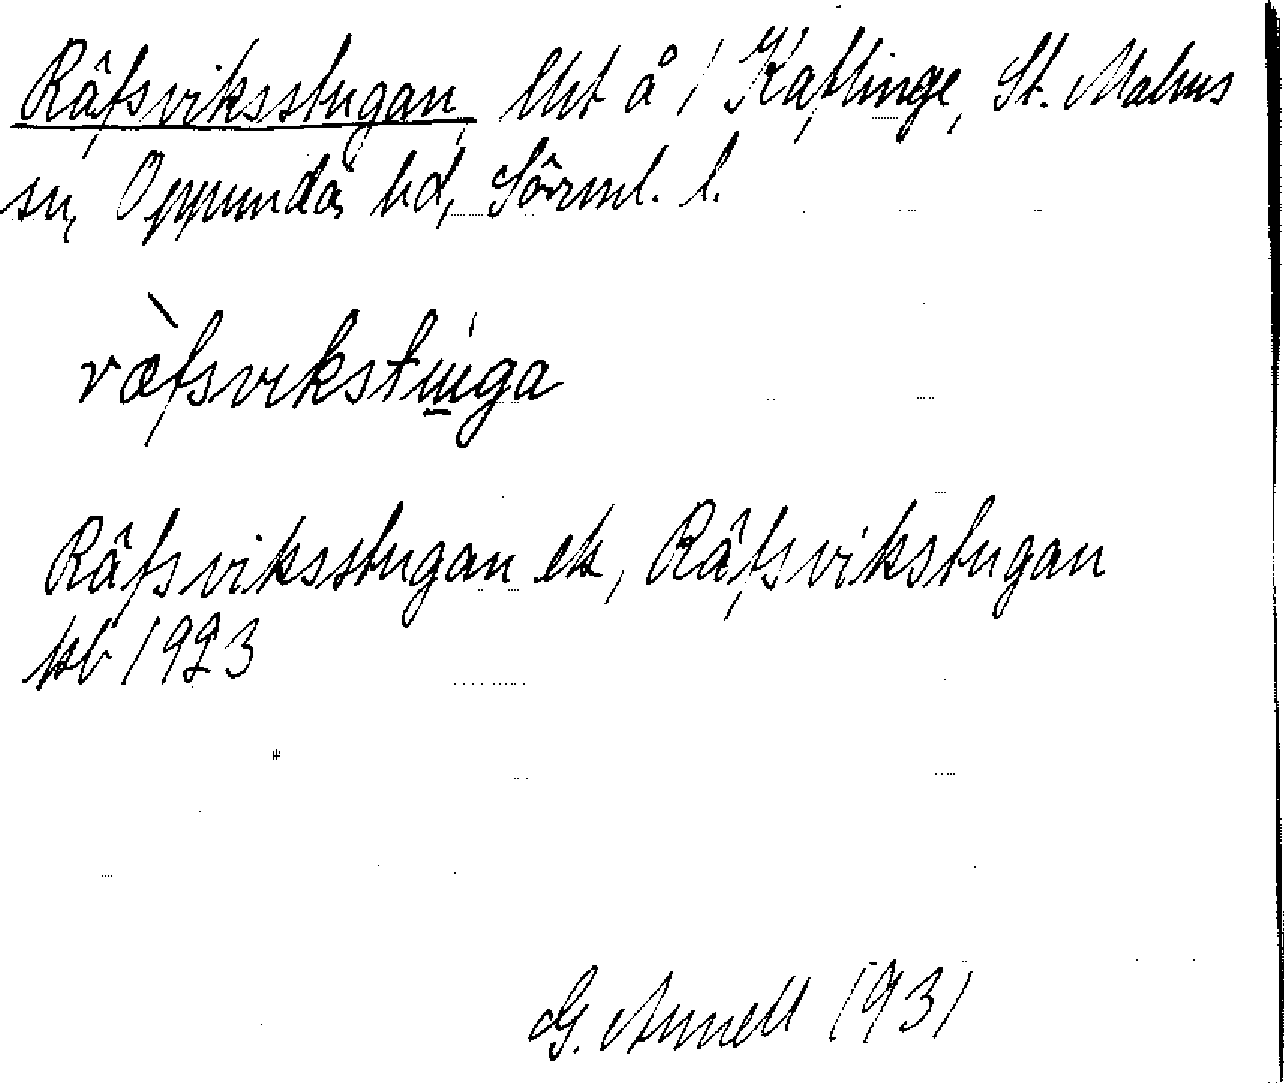 Räfsviksstugan, lht å 1 Kaflinge, St. Malms
sn, Oppunda hd, Sörml. l.
ræ̀fsvikstu̲ga
Räfsviksstugan ek, Räfsvikstugan
kb 1923
G. Annell 1931